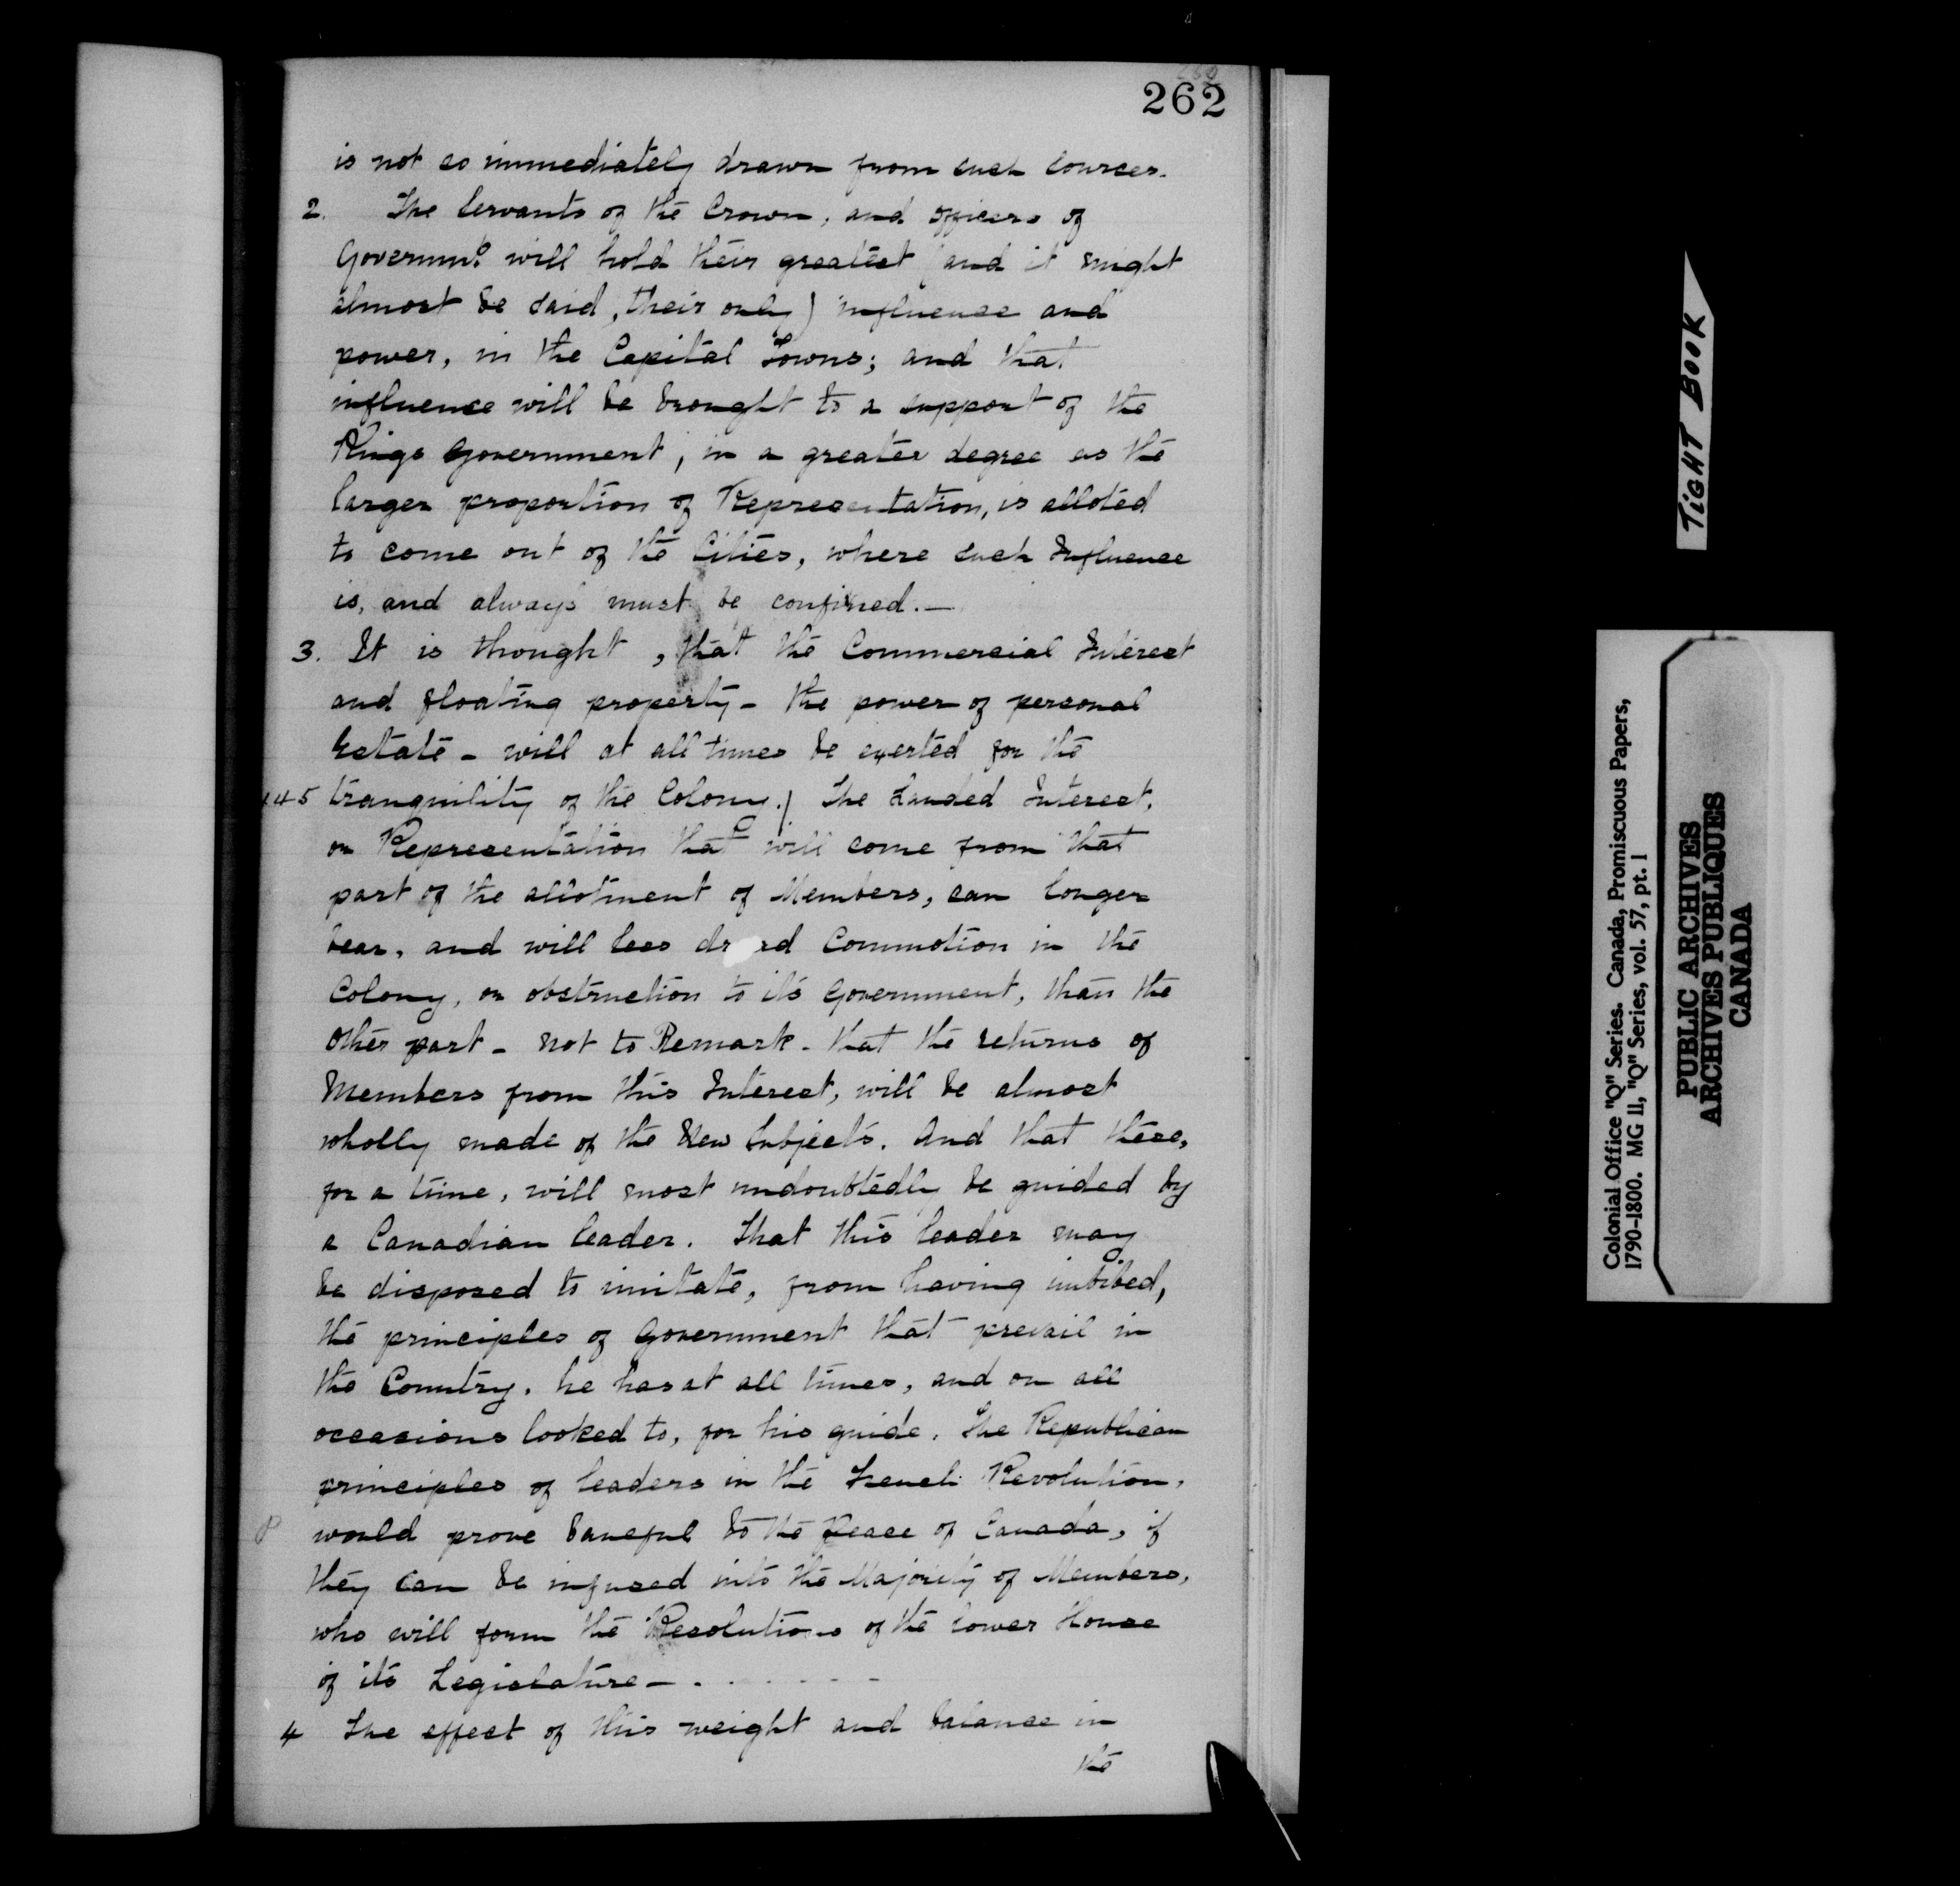 262
is not so immediately drawn from such sources.
2. The Servants of the Crown, and officers of
Governmt. will hold their greatest (and it might
almost be said, their only) influence and
power, in the Capital Towns; and that
influence will be brought to a support of the
Kings Government, in a greater degree as the
larger proportion of Representation, is alloted
to come out of the Cities, where such Influence
is, and always must be confined.—
3. It is thought, that the Commercial Interest
and floating property - the power of personal
Estate - will at all times be exerted for the
145 tranquility of the Colony.) The Landed Interest,
or Representation that will come from that
part of the allotment of Members, can longer
bear, and will less dread Commotion in the
Colony, or obstruction to it's Government, than the
other part - not to Remark - that the returns of
Members from this Interest, will be almost
wholly made of the New Subjects. And that these,
for a time, will most undoubtedly be guided by
a Canadian leader. That this leader may
be disposed to imitate, from having imbibed,
the principles of Government that prevail in
the Country, he has at all times, and on all
occasions looked to, for his guide. The Republican
principles of leaders in the French Revolution,
would prove baneful to the Peace of Canada, if
they can be infused into the Majority of Members,
who will form the Resolutions of the lower House
of its Legislature - . - - - - -
4 The effect of this weight and balance in
the
TIGHT BOOK
Colonial Office "Q" Series. Canada, Promiscuous Papers,
1790-1800. MG 11, "Q" Series, vol. 57, pt. 1
PUBLIC ARCHIVES
ARCHIVES PUBLIQUES
CANADA